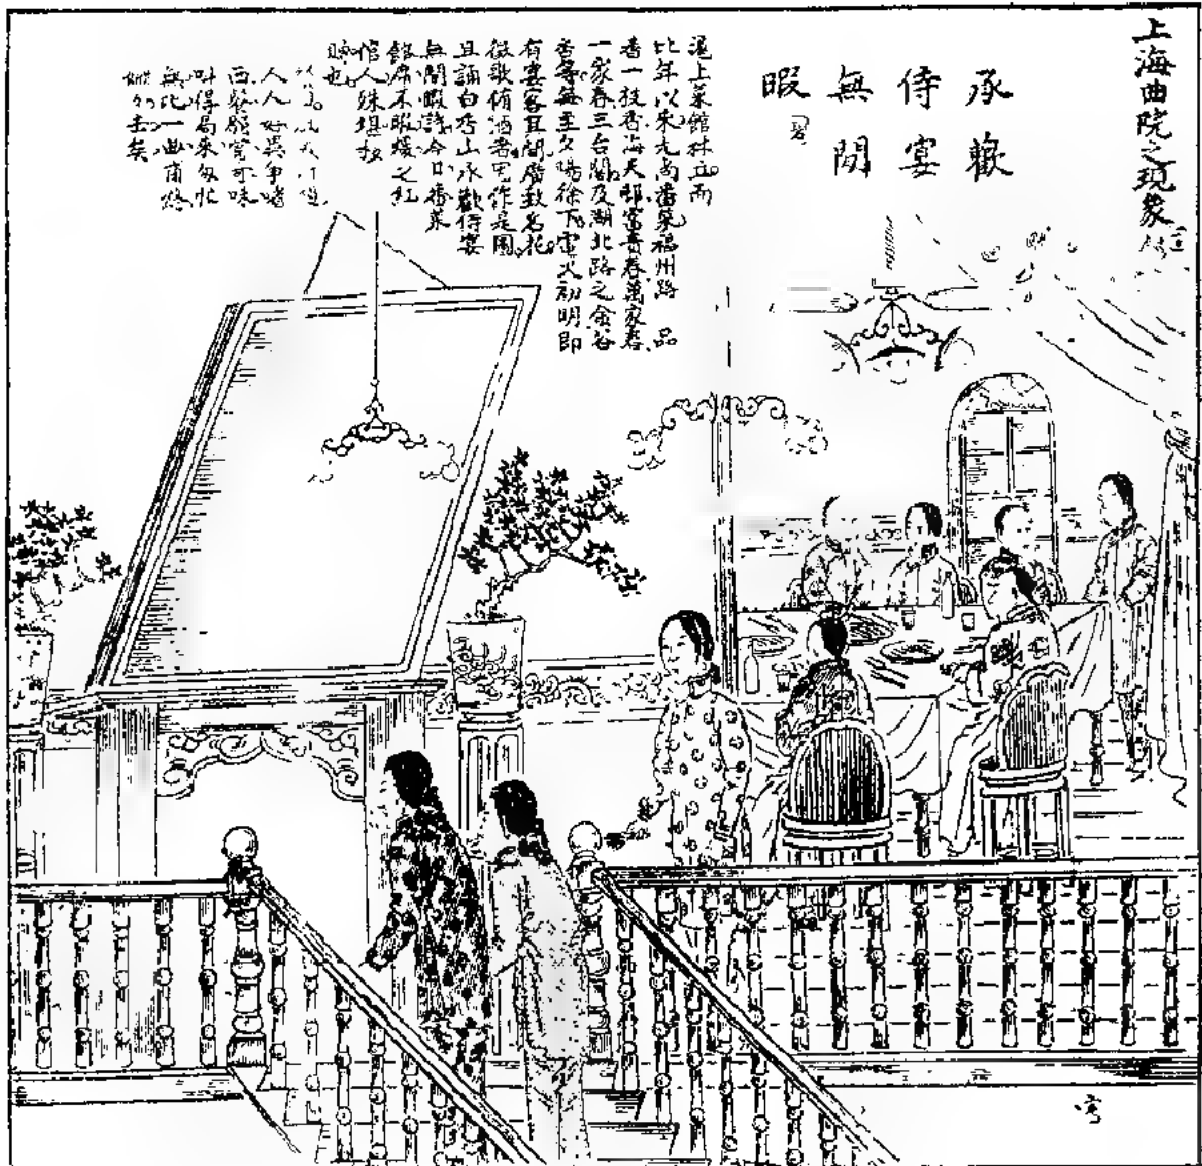 上海曲院之現象
承歡
侍宴
無閒
暇
滬上菜館林立而
比年以來尤尚番菜福州路一品
香一枝香海天邨富貴春萬家春
一家春三台閣及湖北路之金谷
香等每至夕陽徐下電火初明即
有宴客其間廣致名花
徵歌侑酒者因作是圖
且誦白香山承歡侍宴
無閒暇詩今日番菜
館席不暇煖之紅
倌人殊堪移
贈也
人人好異爭嗜
西餐願嘗異味
叫得局來匆忙
無比一曲甫終